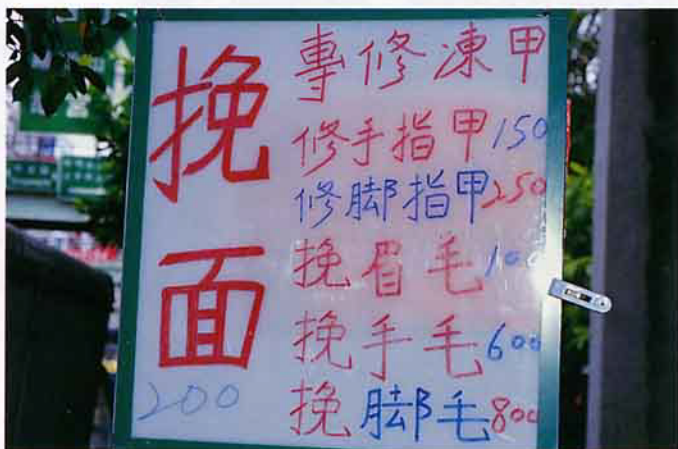 挽面
200
專修凍甲
修手指甲150
修脚指甲250
挽眉毛100
挽手毛600
挽脚毛800